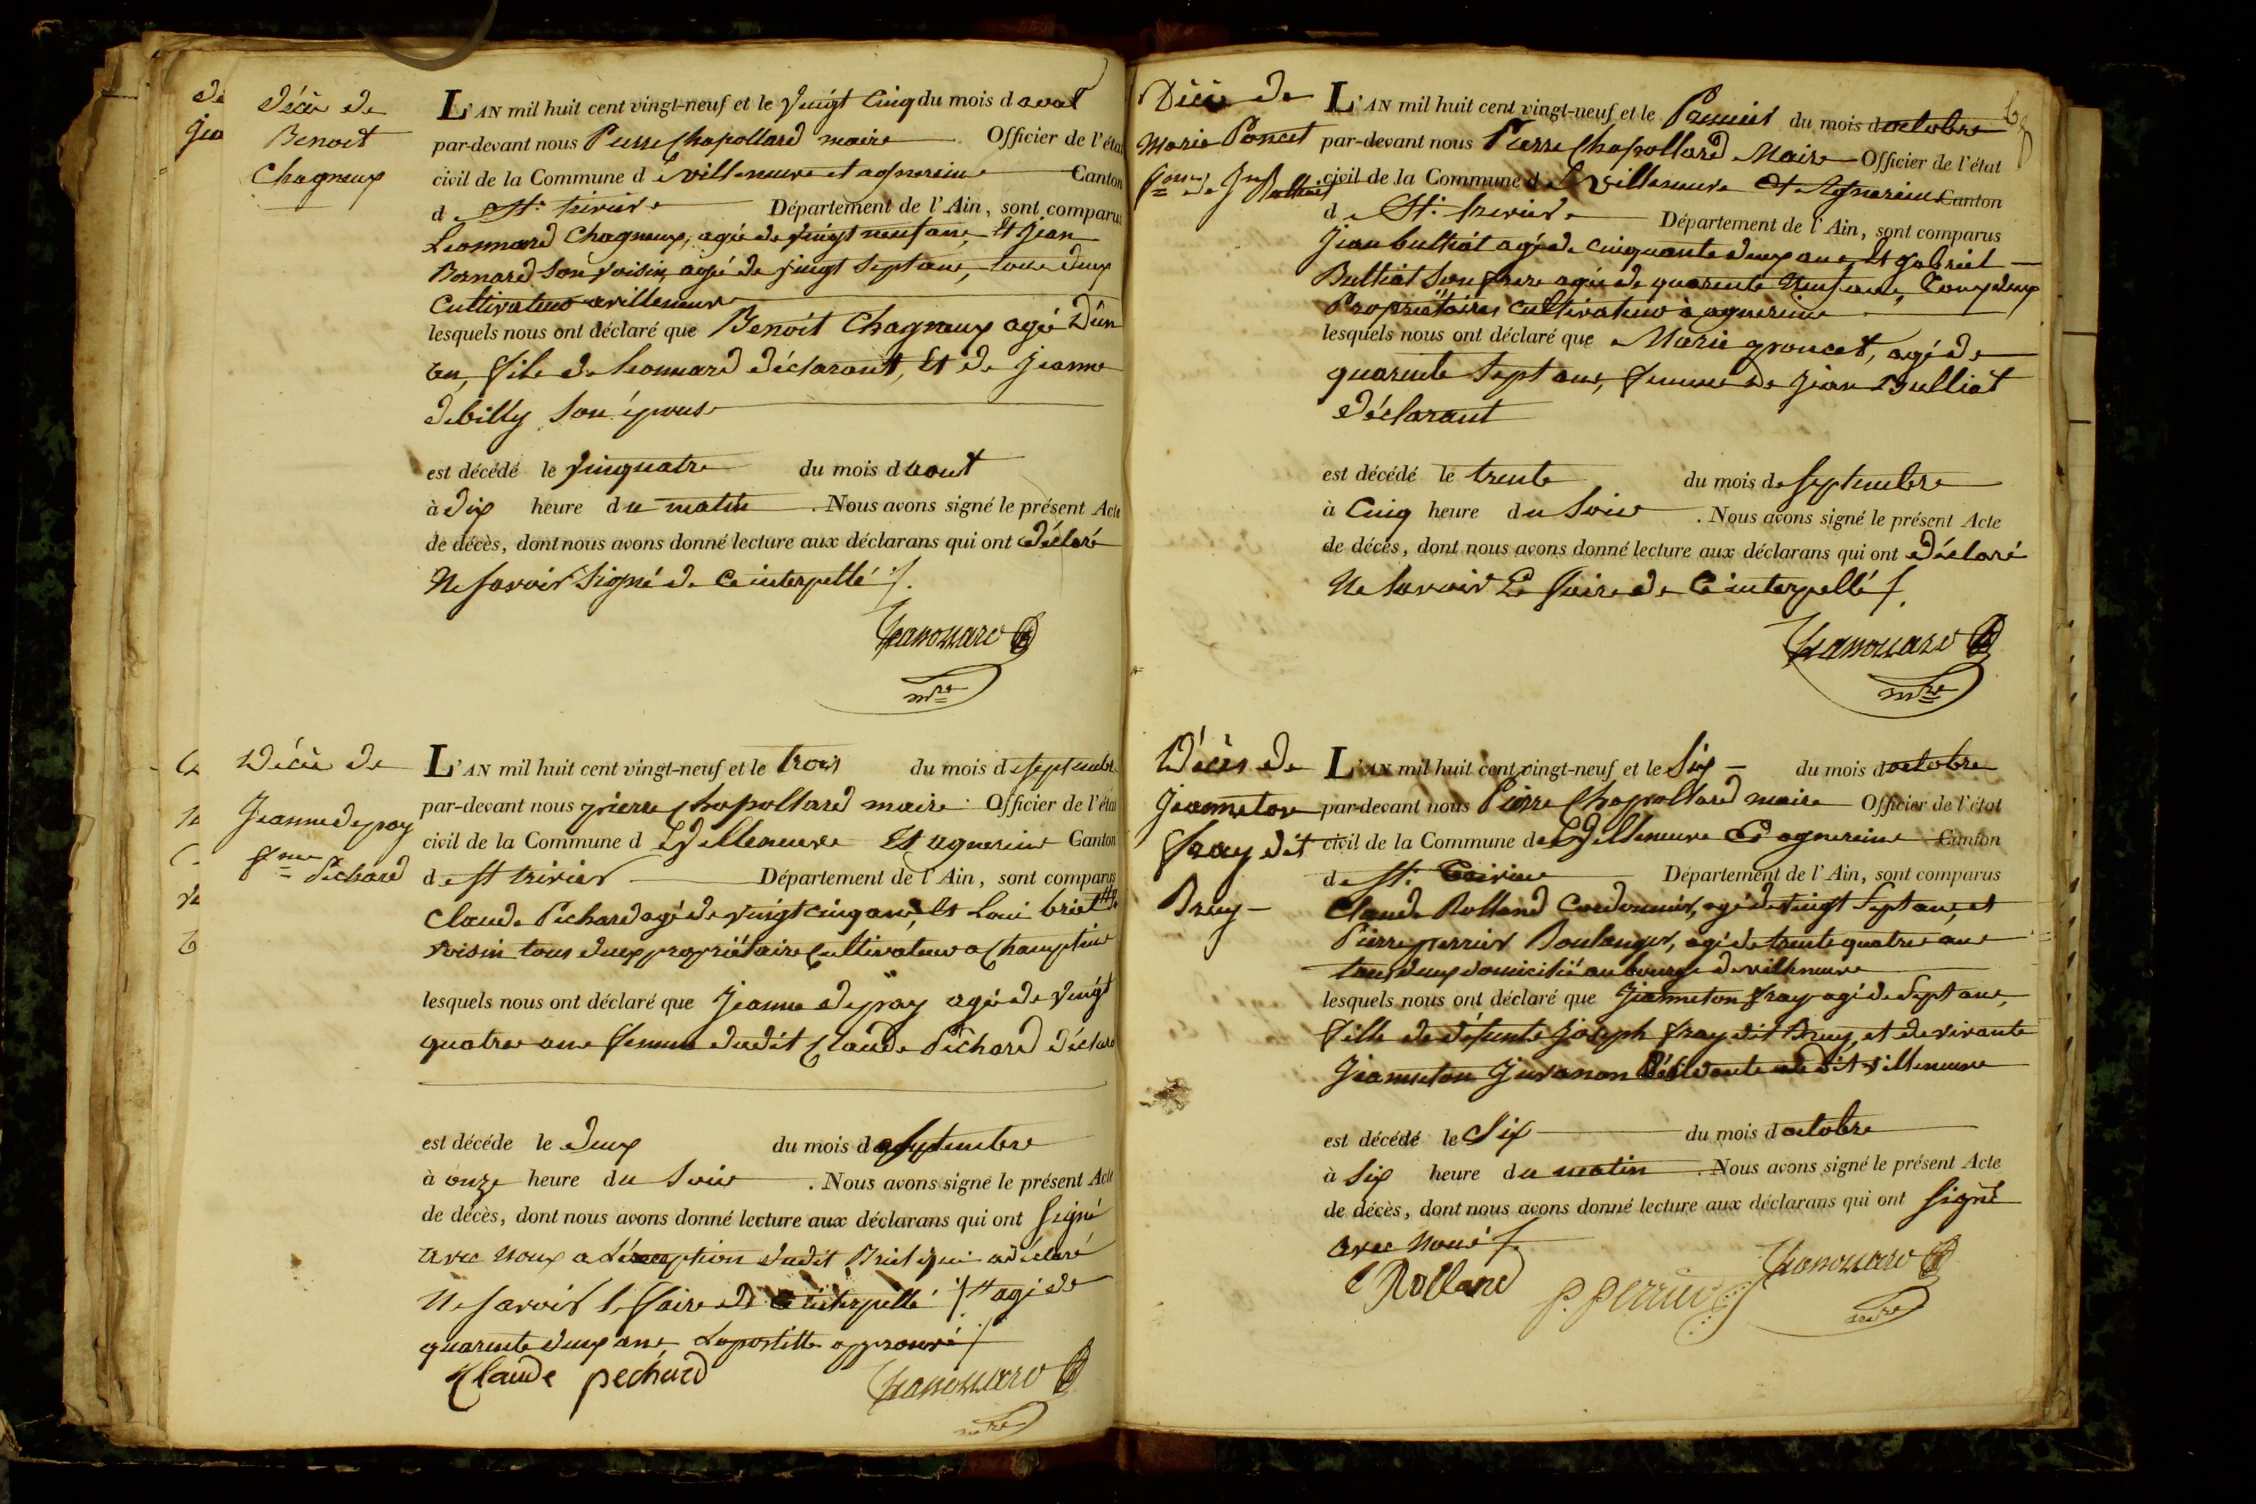 de
Jea
Décès de
Benoit
Chagneux
L'AN mil huit cent vingt-neuf et le vingt cinq du mois d aout
par-devant nous Pierre Chapollard maire Officier de l'état
civil de la Commune d e villeneuve et agnereins Canton
d e St. trivier Département de l'Ain, sont comparus
Leonnard Chagneux, agé de vingt neuf ans, Et Jean
Bernard son voisin, agé de vingt sept ans, tous deux
Cultivateurs a villeneuve
lesquels nous ont déclaré que Benoit Chagneux agé D'un
an, fils de Leonnard déclarant, Et de Jeanne
debilly son épouse
est décédé le vingquatre du mois d aout
à dix heure du matin . Nous avons signé le présent Acte
de décès, dont nous avons donné lecture aux déclarans qui ont déclaré
Ne savoir signé de ce interpellé ./.
Chapollard
mre
Décès de
Jeanne depay
fme Péchard
L'AN mil huit cent vingt-neuf et le trois du mois d e septembre
par-devant nous pierre Chapollard maire Officier de l'état
civil de la Commune d e Villeneuve Et agnereins Canton
d e st trivier Département de l'Ain, sont comparus
Claude Pichard agé de vingt cinq ans, Et Loui briet
voisin tous deux propriétaire Cultivateurs a Champtein
lesquels nous ont déclaré que Jeanne depay agé de vingt
quatre ans femme dudit Claude Péchard déclara
est décéde le deux du mois d e septembre
à onze heure du soir . Nous avons signé le présent Acte
de décès, dont nous avons donné lecture aux déclarans qui ont signé
avec nous a L'exception dudit Briet qui a déclaré
Ne savoir le faire de ce interpellé ./. # agé de
quarente deux ans, Lapostille approuvé ./.
Claude pechard
Chapollard
mre
Décès de
Marie Poncet
fme de Jn Bulliat
L'AN mil huit cent vingt-neuf et le Premier du mois d octobre
par-devant nous Pierre Chapollard Maire Officier de l'état
civil de la Commune d e Villeneuve Et Agnereins Canton
d e St. trivier Département de l'Ain, sont comparus
Jean bulliat agé de cinquante deux ans, Et gabriel
Bulliat son frere agé de quarente Neuf ans, Tous deux
Propriétaires Cultivateurs à agnereins
lesquels nous ont déclaré que Marie poncet, agé de
quarente sept ans, femme de Jean Bulliat
déclarant
est décédé le trente du mois de septembre
à Cinq heure du soir . Nous avons signé le présent Acte
de décès, dont nous avons donné lecture aux déclarans qui ont déclaré
Ne savoir Le faire de Ce interpellé ./.
Chapollard
mre
Décès de
Jeanneton
fray dit
Bruy
L'AN mil huit cent vingt-neuf et le Six du mois d octobre
par-devant nous Pierre Chapollard maire Officier de l'état
civil de la Commune de Villeneuve Et agnereins Canton
d e St. Trivier Département de l'Ain, sont comparus
Claude Rolland Cordonnier, agé de vingt sept ans, et
Pierre perrier Boulanger, agé de trente quatre ans
tous deux domicilié au bourg de villeneuve
lesquels nous ont déclaré que Jeanneton fray agé de sept ans,
fille de défunte Joseph fray dit Bruy, et de vivante
Jeanneton Juvanon Résidante audit villeneuve
est décédé le Six du mois d octobre
à Six heure du matin . Nous avons signé le présent Acte
de décès, dont nous avons donné lecture aux déclarans qui ont signé
avec Nous ./.
C Rolland
P. perrier
Chapollard
mre